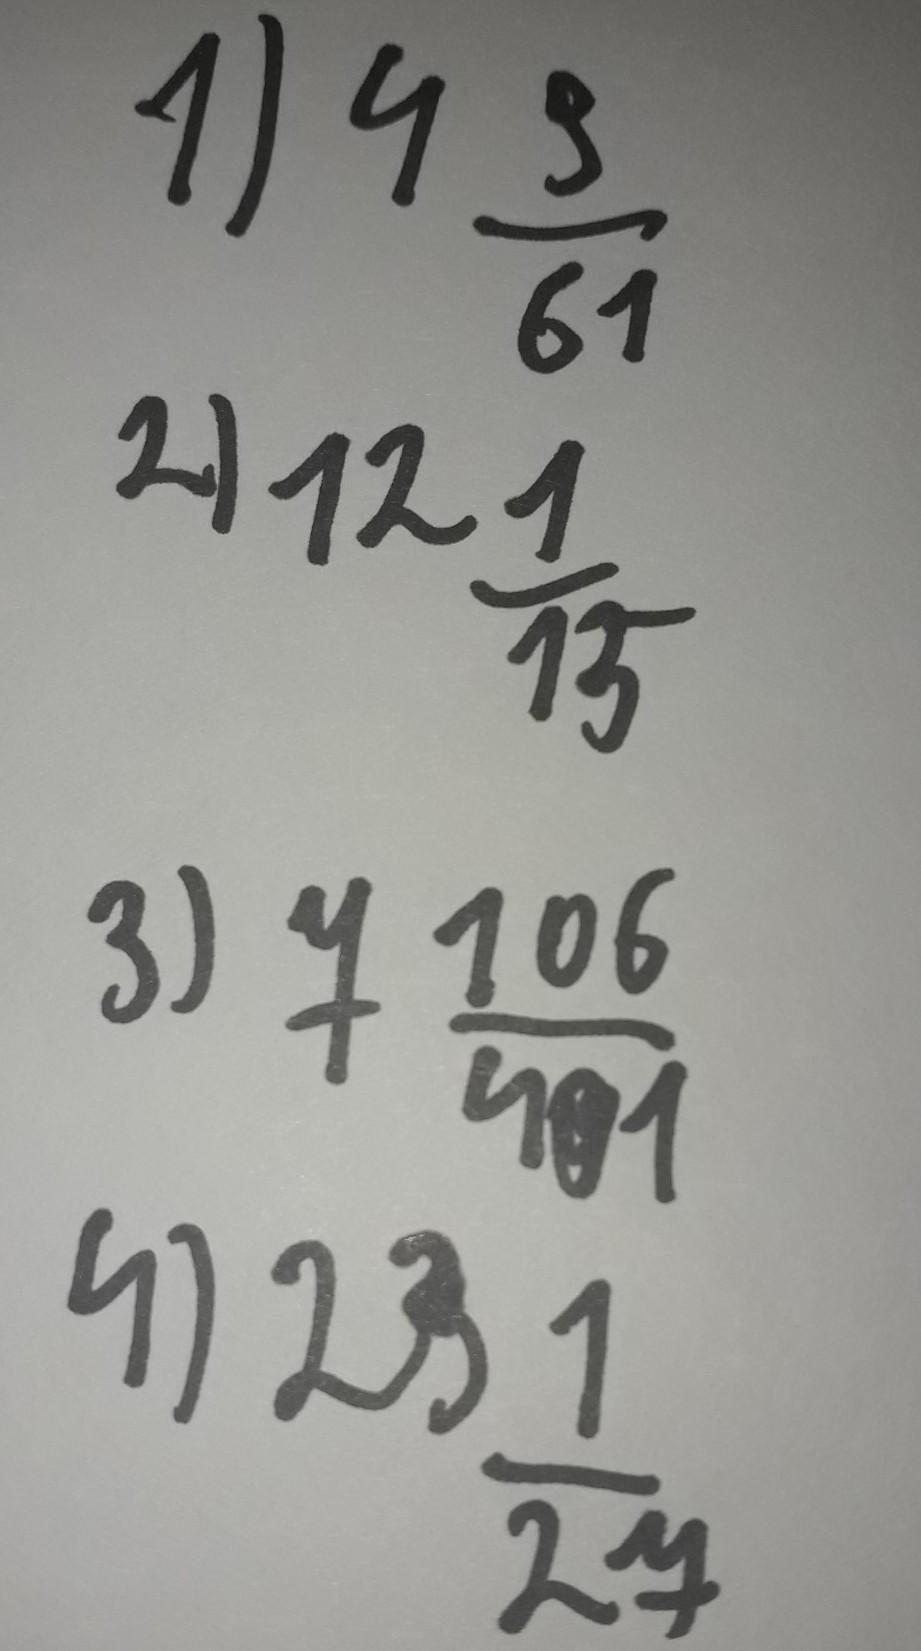 1) 4 9/61
2) 12 1/15
3) 7 106/401
4) 23 1/27